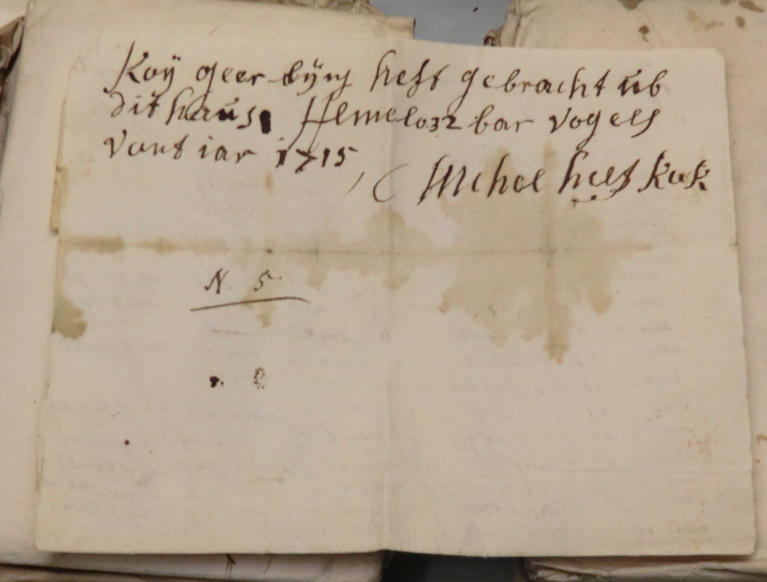 Koÿ geer dÿnj heft gebracht ub
dit haus Hemelo 32 bar vogels
vant iar 1715
Michel heest kok
N. 5